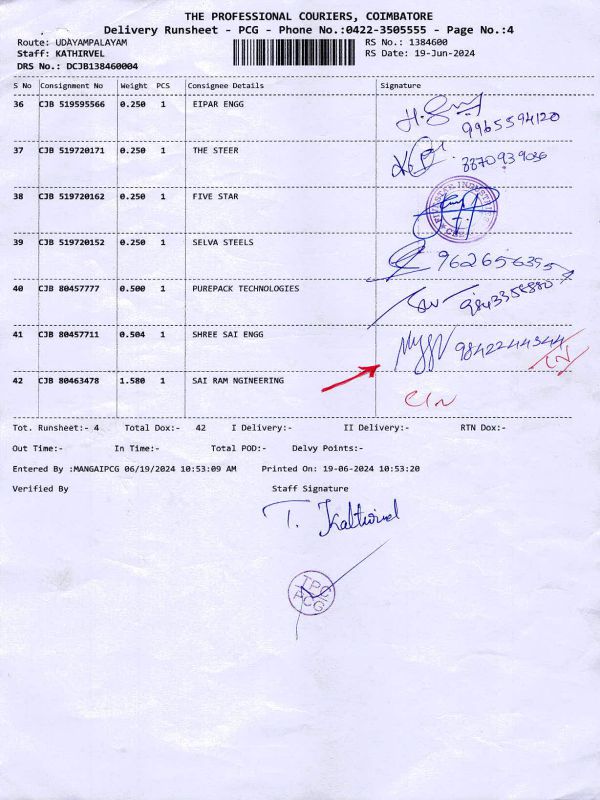 THE PROFESSIONAL COURIERS, COIMBATORE
Delivery Runsheet - PCG - Phone No.:0422-3505555 - Page No.:4
Route: UDAYAMPALAYAM RS No.: 1384600
Staff: KATHIRVEL RS Date: 19-Jun-2024
DRS No.: DCJB138460004
S No Consignment No Weight PCS Consignee Details Signature
36 CJB 519595566 0.250 1 EIPAR ENGG
9965594120
37 CJB 519720171 0.250 1 THE STEER
8870939036
38 CJB 519720162 0.250 1 FIVE STAR
39 CJB 519720152 0.250 1 SELVA STEELS
962656395
40 CJB 80457777 0.500 1 PUREPACK TECHNOLOGIES
9843358880
41 CJB 80457711 0.504 1 SHREE SAI ENGG
9842244344
42 CJB 80463478 1.580 1 SAI RAM NGINEERING
Tot. Runsheet:- 4 Total Dox:- 42 I Delivery:- II Delivery:- RTN Dox:-
Out Time:- In Time:- Total POD:- Delvy Points:-
Entered By :MANGAIPCG 06/19/2024 10:53:09 AM Printed On: 19-06-2024 10:53:20
Verified By Staff Signature
TPC
PCG